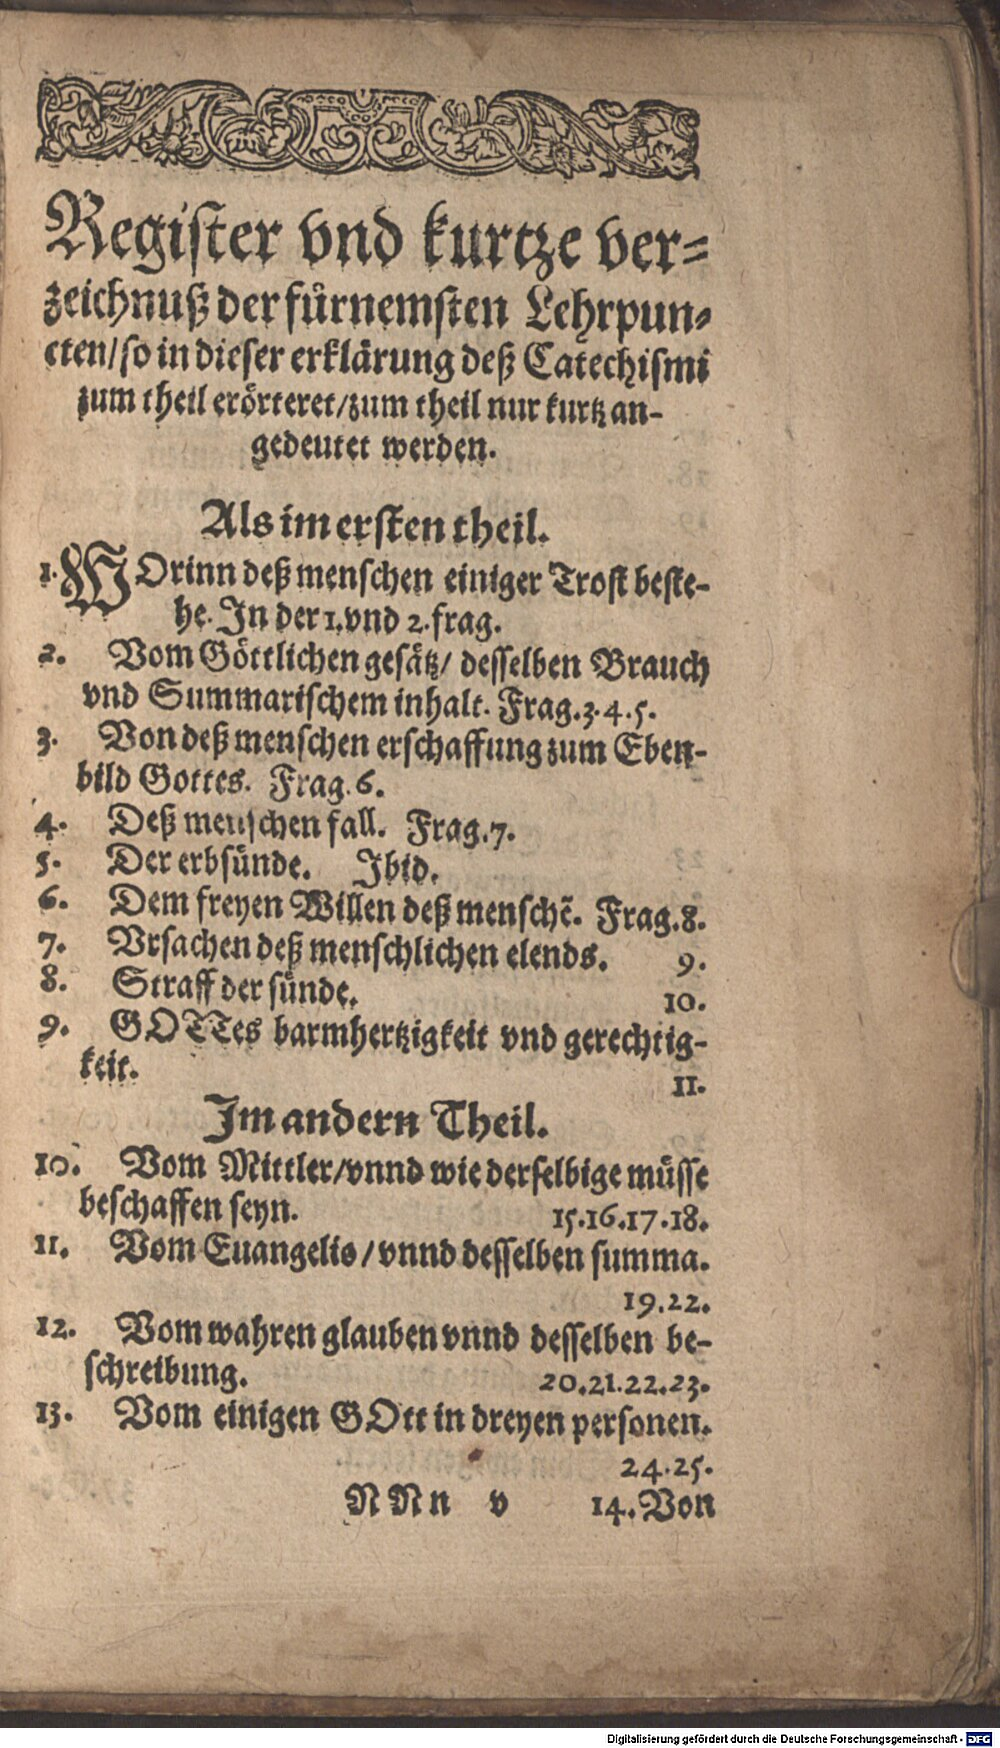 Register vnd kurtze ver⸗
zeichnuß der fürnemsten Lehrpun⸗
cten/ so in dieser erklärung deß Catechismi
zum theil erörteret/ zum theil nur kurtz an-
gedeutet werden.
Als im ersten theil.
1. WOrinn deß menschen einiger Trost beste-
he. In der 1. vnd 2. frag.
2. Vom Göttlichen gesätz/ desselben Brauch
vnd Summarischem inhalt. Frag. 3. 4. 5.
3. Von deß menschen erschaffung zum Eben-
bild Gottes. Frag. 6.
4. Deß menschen fall. Frag. 7.
5. Der erbsünde. Ibid.
6. Dem freyen Willen deß menschẽ. Frag. 8.
7. Vrsachen deß menschlichen elends. 9.
8. Straff der sünde. 10.
9. GOTTes barmhertzigkeit vnd gerechtig-
keit. 11.
Im andern Theil.
10. Vom Mittler/ vnnd wie derselbige müsse
beschaffen seyn. 15. 16. 17. 18.
11. Vom Euangelio/ vnnd desselben summa.
19. 22.
12. Vom wahren glauben vnnd desselben be-
schreibung. 20. 21. 22. 23.
13. Vom einigen GOtt in dreyen personen.
24. 25.
NNn v 14. Von
Digitalisierung gefördert durch die Deutsche Forschungsgemeinschaft - DFG